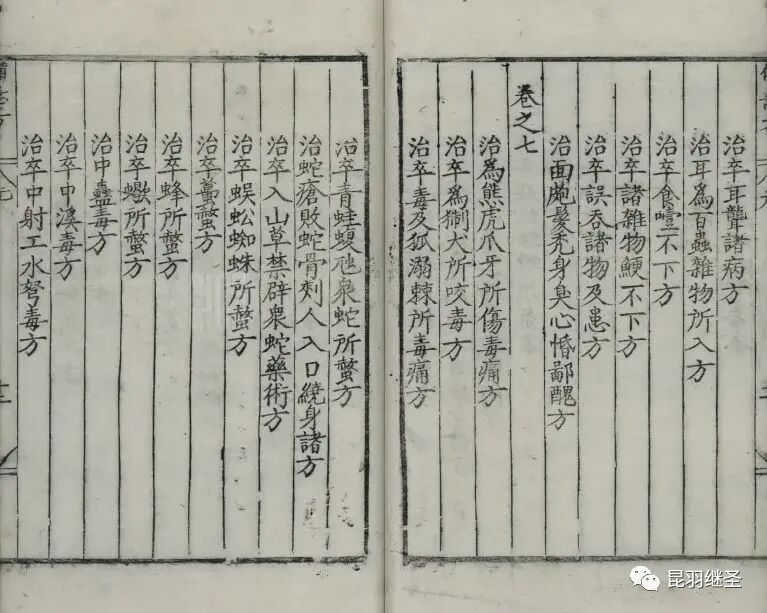 治卒耳聾諸病方
治耳為百蟲雜物所入方
治卒食噎不下方
治卒諸雜物鯁不下方
治卒誤吞諸物及患方
治面皰髮禿身臭心惛鄙醜方
卷之七
治為熊虎爪牙所傷毒痛方
治卒為猘犬所咬毒方
治卒毒及狐溺棘所毒痛方
治卒青蛙蝮虺衆蛇所螫方
治蛇瘡敗蛇骨刾人入口繞身諸方
治卒入山草禁辟衆蛇藥術方
治卒蜈蚣蜘蛛所螫方
治卒蠆螫方
治卒蜂所螫方
治卒蠍所螫方
治中蠱毒方
治卒中溪毒方
治卒中射工水弩毒方
昆羽继圣